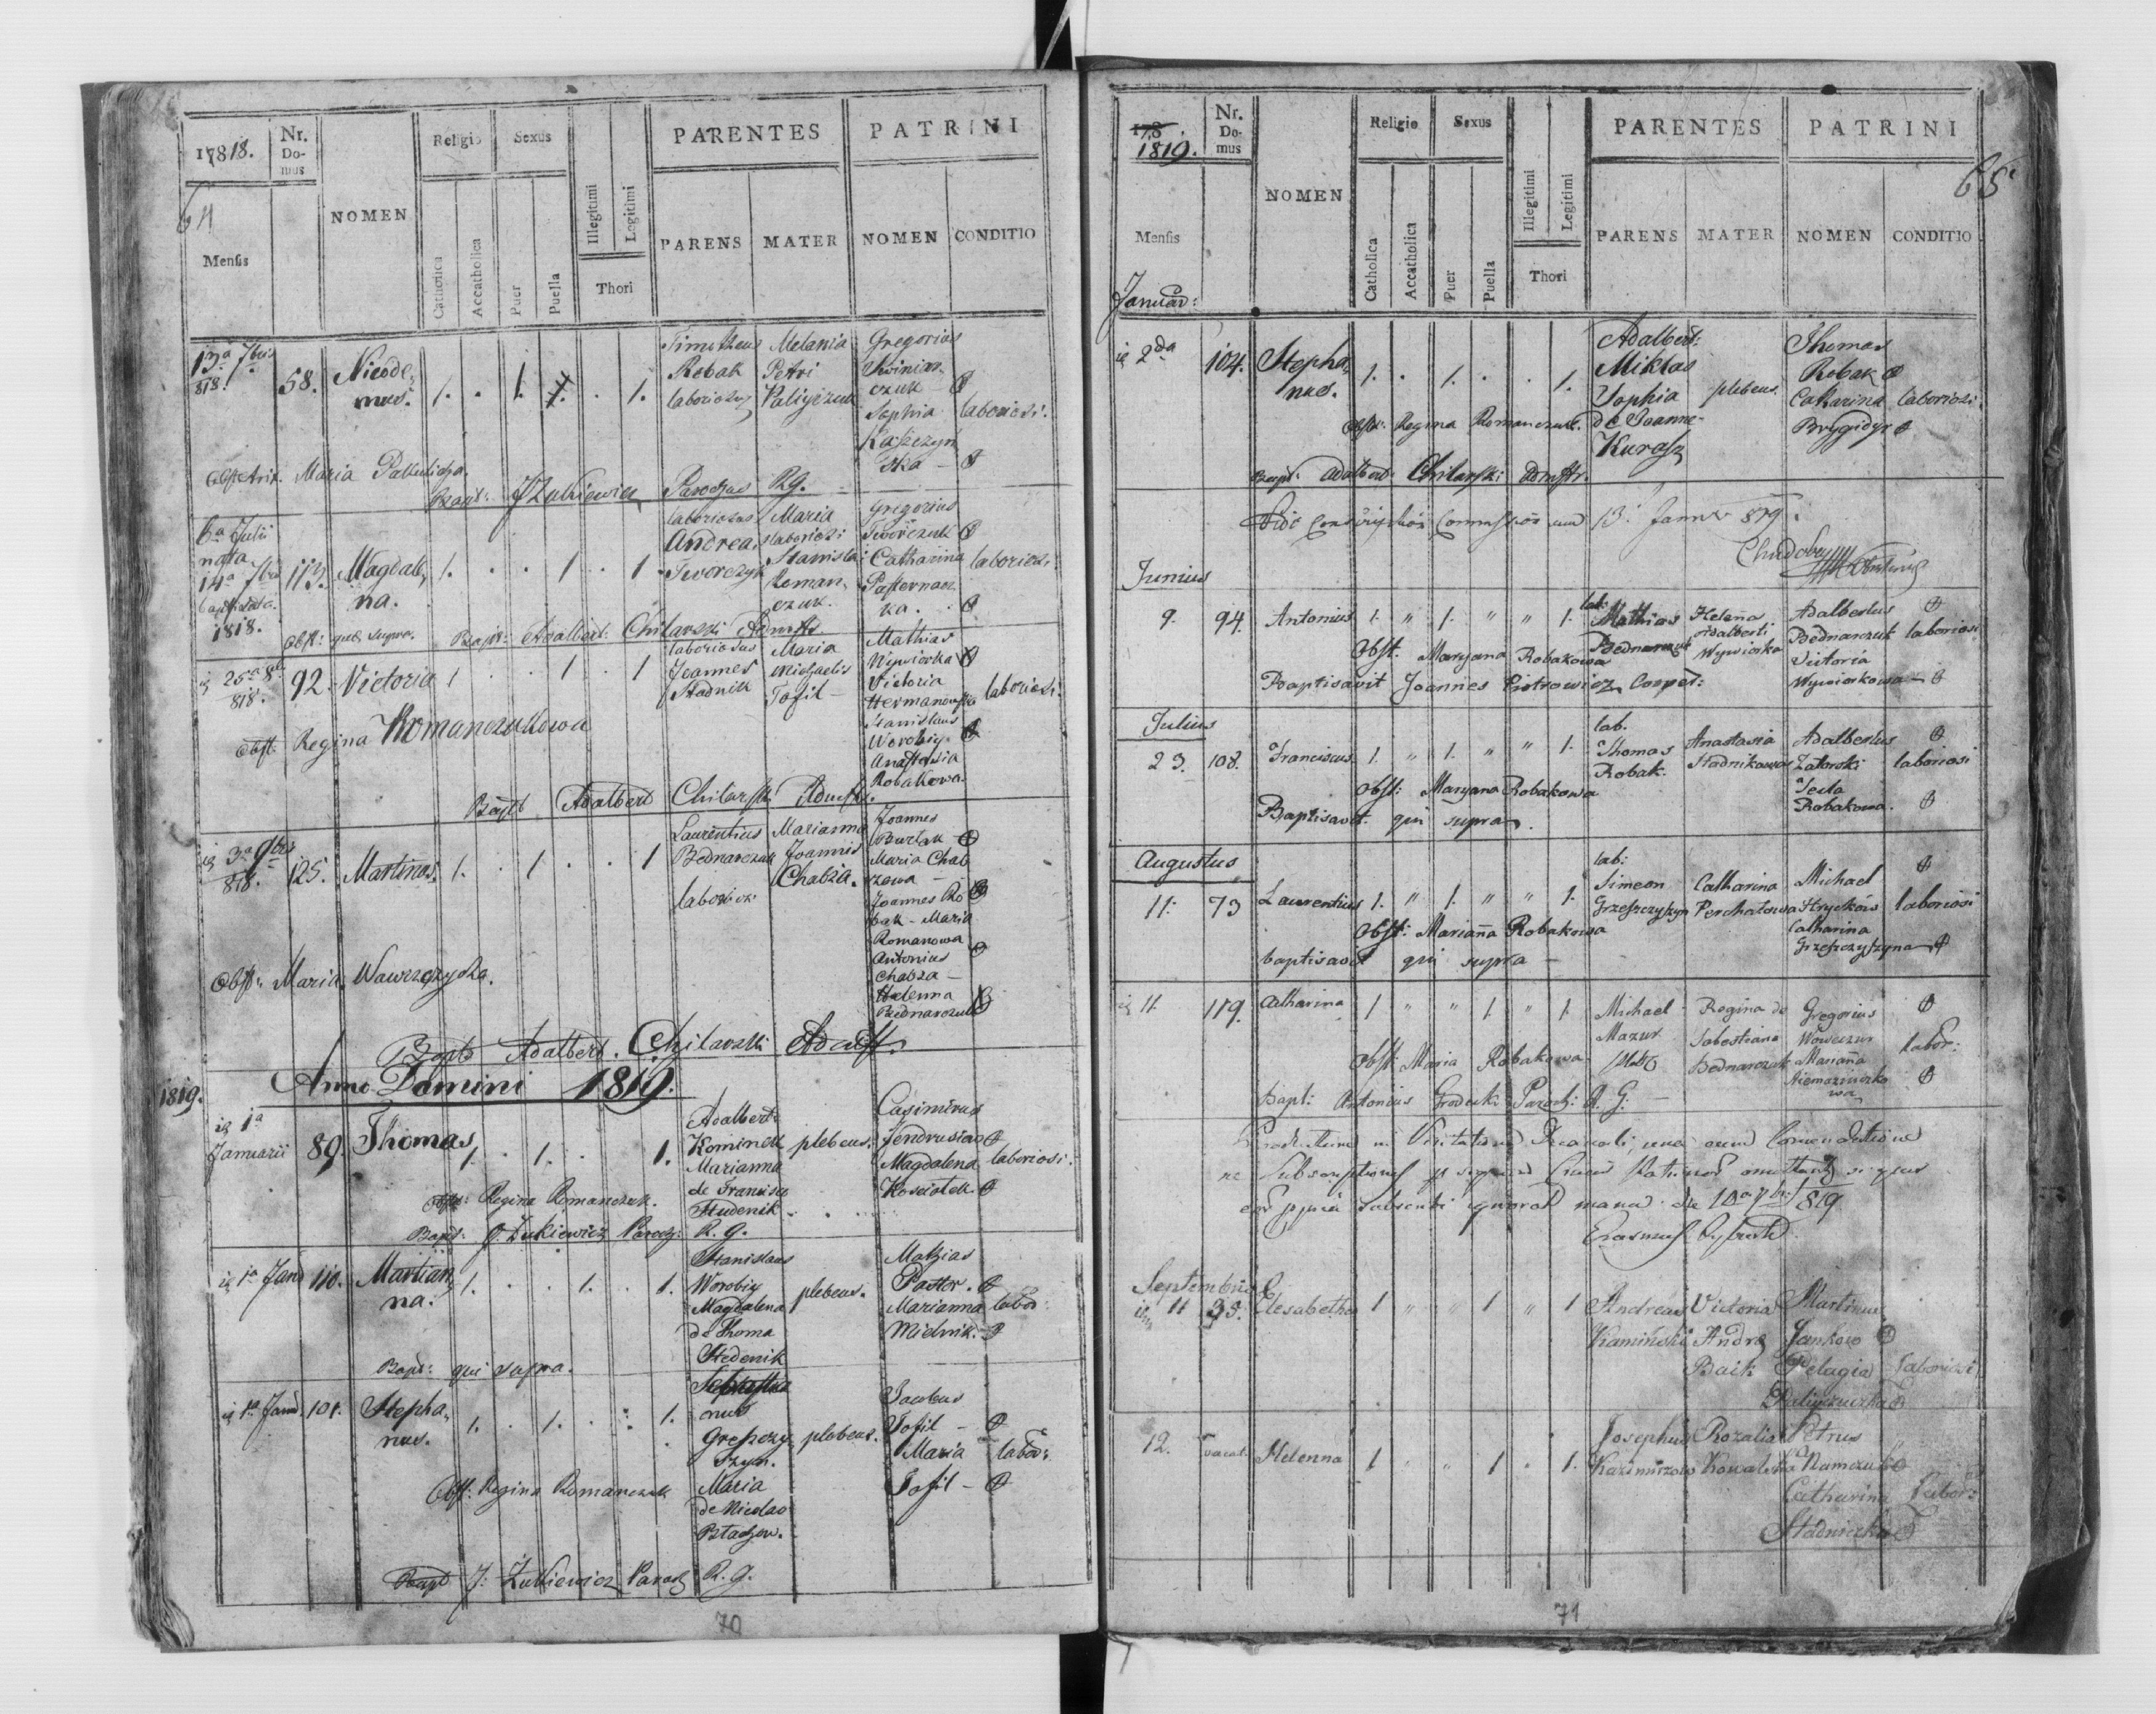 17818.
Nr. Domus
NOMEN
Religio
Sexus
PARENTES
PATRINI
64
Mensis
Catholica
Accatholica
Puer
Puella
Illegitimi
Legitimi
Thori
PARENS
MATER
NOMEN
CONDITIO
13a 7bris 818. 58. Nicodemus. 1. . 1. . 1.
Timotheus Robak laboriosus
Melania Petri Paliyczuk
Gregorius czuk
Sophia Kaszczyńska laboriosi.
Obstetrix Maria
Bapt: J Zukiewicz Parochus R g.
6a Julii nata 14a 7bris baptisata 1818. 113. Magdalena. 1. . . 1 . 1
laboriosus Andreas Tworczyk
Maria laboriosi Stanislai Romanczuk.
Gregorius Tworczuk
Catharina Pasternaczka. laboriosi.
Obst: quae supra. Bapt: Adalbert: Chilarski Admstr
818. 92. Victoria 1 . . 1 . 1
laboriosus Joannes Stadnik
Maria Michaelis Tofil
Mathias Wywiorka
Victoria Hermanowska laboriosi.
Stanislaus Worobiy
Anastasia Robakowa.
Obst: Regina Romanczukowa
Bapt Adalbert Chilarski Admstr.
3a 9bris 818. 125. Martinus. 1. . 1 . . 1
Laurentius Bednarczuk laborios
Marianna Joannis Chabza.
Joannes Burlak
Maria Chabzowa
Joannes Robak - Maria Romanowa
Antonius Chabza
Helenna Bednarczuk
Obst: Maria Wawrzczyszka.
Bapt Adalbert. Chilarski Admstr.
1819. Anno Domini 1819.
1a Januarii 89. Thomas 1. . 1. . . 1.
Adalbert Kominek Marianna de Francisco Studenik
plebeus.
Casimirus Jendrusiak
Magdalena Kosciolek. laboriosi.
Obst: Regina Romanczuk.
Bapt: J. Zukiewicz Paroch: R. g.
1a Jan 110. Marianna. 1. . . 1. . 1.
Stanislaus Worobiy Magdalena de Thoma Stedenik
plebeus.
Mathias Pastor.
Marianna Mielnik. labor
Bapt: qui supra.
1a Janu. 101. Stephanus. 1. . 1. . . 1.
Sebastianus Grzeszczyszyn. Maria de Nicolao
plebeus.
Jacobus Tofil
Maria Tofil labor:
Obst: Regina Romanczuk
Bapt J: Zukiewicz Paroch R. g.
70
178 1819.
Nr. Domus
NOMEN
Religio
Sexus
PARENTES
PATRINI
65
Mensis
Catholica
Accatholica
Puer
Puella
Illegitimi
Legitimi
Thori
PARENS
MATER
NOMEN
CONDITIO
Januar:
2da 104. Stephanus. 1. . 1. . . 1.
Adalbert: Miklas Sophia de Joanne Kurasz
plebeus.
Thomas Robak
Catharina Brygidyr laboriosi.
Obst: Regina Romanczuk.
Bapt: Adalbert Chilarski Admstr.
13. Januar 819.
Junius
9. 94. Antonius 1. " 1. " " 1.
lab: Mathias Bednarczuk
Helena Adalberti Wywiorka
Adalbertus Bednarczuk laboriosi
Victoria Wywiorkowa
Obst. Maryana Robakowa
Baptisavit Joannes Piotrowicz Cooper:
Julius
23. 108. Franciscus. 1. " 1. " " 1.
lab. Thomas Robak.
Anastasia Stadnikowa
Adalbertus Zatorski laboriosi
Tecla Robakowa.
Obst: Maryana Robakowa
Baptisavit qui supra.
Augustus
11. 73 Laurentius 1. " 1. " " 1.
lab: Simeon Grzeszczyszyn
Catharina Perchalowa
Michael Stryckow laboriosi
Catharina Grzeszczyszyna
Obst: Marianna Robakowa
baptisavit qui supra
11. 119. Catharina 1 " " 1 " 1.
Michael Mazur
Regina de Sebestiano Bednarczuk
Gregorius
Marianna labor:
Obst Maria Robakowa
Bapt: Antonius Grodecki Paroch: R. G.
die 10a 7bris 819
Erasmus
Septembris
11 35. Elisabetha 1 " " 1 " 1
Andreas Kaminski
Victoria Andr Baik
Martinus Jankow
Pelagia laboriosi
12. vacat. Helenna 1 . " 1 . 1.
Josephus Kazimirzow
Rozalia Kowalska
Petrus Namczuk
Catharina Stadniczka Labor:
71